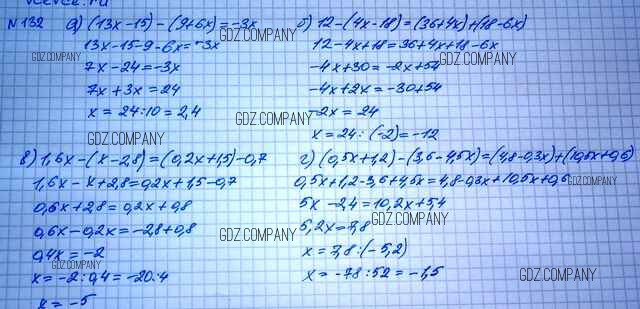 №132 а) (13x-15)-(9+6x)=-3x
13x-15-9-6x=-3x
7x-24=-3x
7x+3x=24
x=24:10=2,4
б) 12-(4x-18)=(36+4x)+(18-6x)
12-4x+18=36+4x+18-6x
-4x+30=-2x+54
-4x+2x=-30+54
-2x=24
x=24:(-2)=-12
в) 1,6x-(x-2,8)=(0,2x+1,5)-0,7
1,6x-x+2,8=0,2x+1,5-0,7
0,6x+2,8=0,2x+0,8
0,6x-0,2x=-2,8+0,8
0,4x=-2
x=-2:0,4=-20:4
x=-5
г) (0,5x+1,2)-(3,6-4,5x)=(4,8-0,3x)+(10,5x+0,6)
0,5x+1,2-3,6+4,5x=4,8-0,3x+10,5x+0,6
5x-2,4=10,2x+5,4
5,2x=7,8
x=7,8:(-5,2)
x=-78:52=-1,5
GDZ.COMPANY
GDZ.COMPANY
GDZ.COMPANY
GDZ.COMPANY
GDZ.COMPANY
GDZ.COMPANY
GDZ.COMPANY
GDZ.COMPANY
GDZ.COMPANY
GDZ.COMPANY